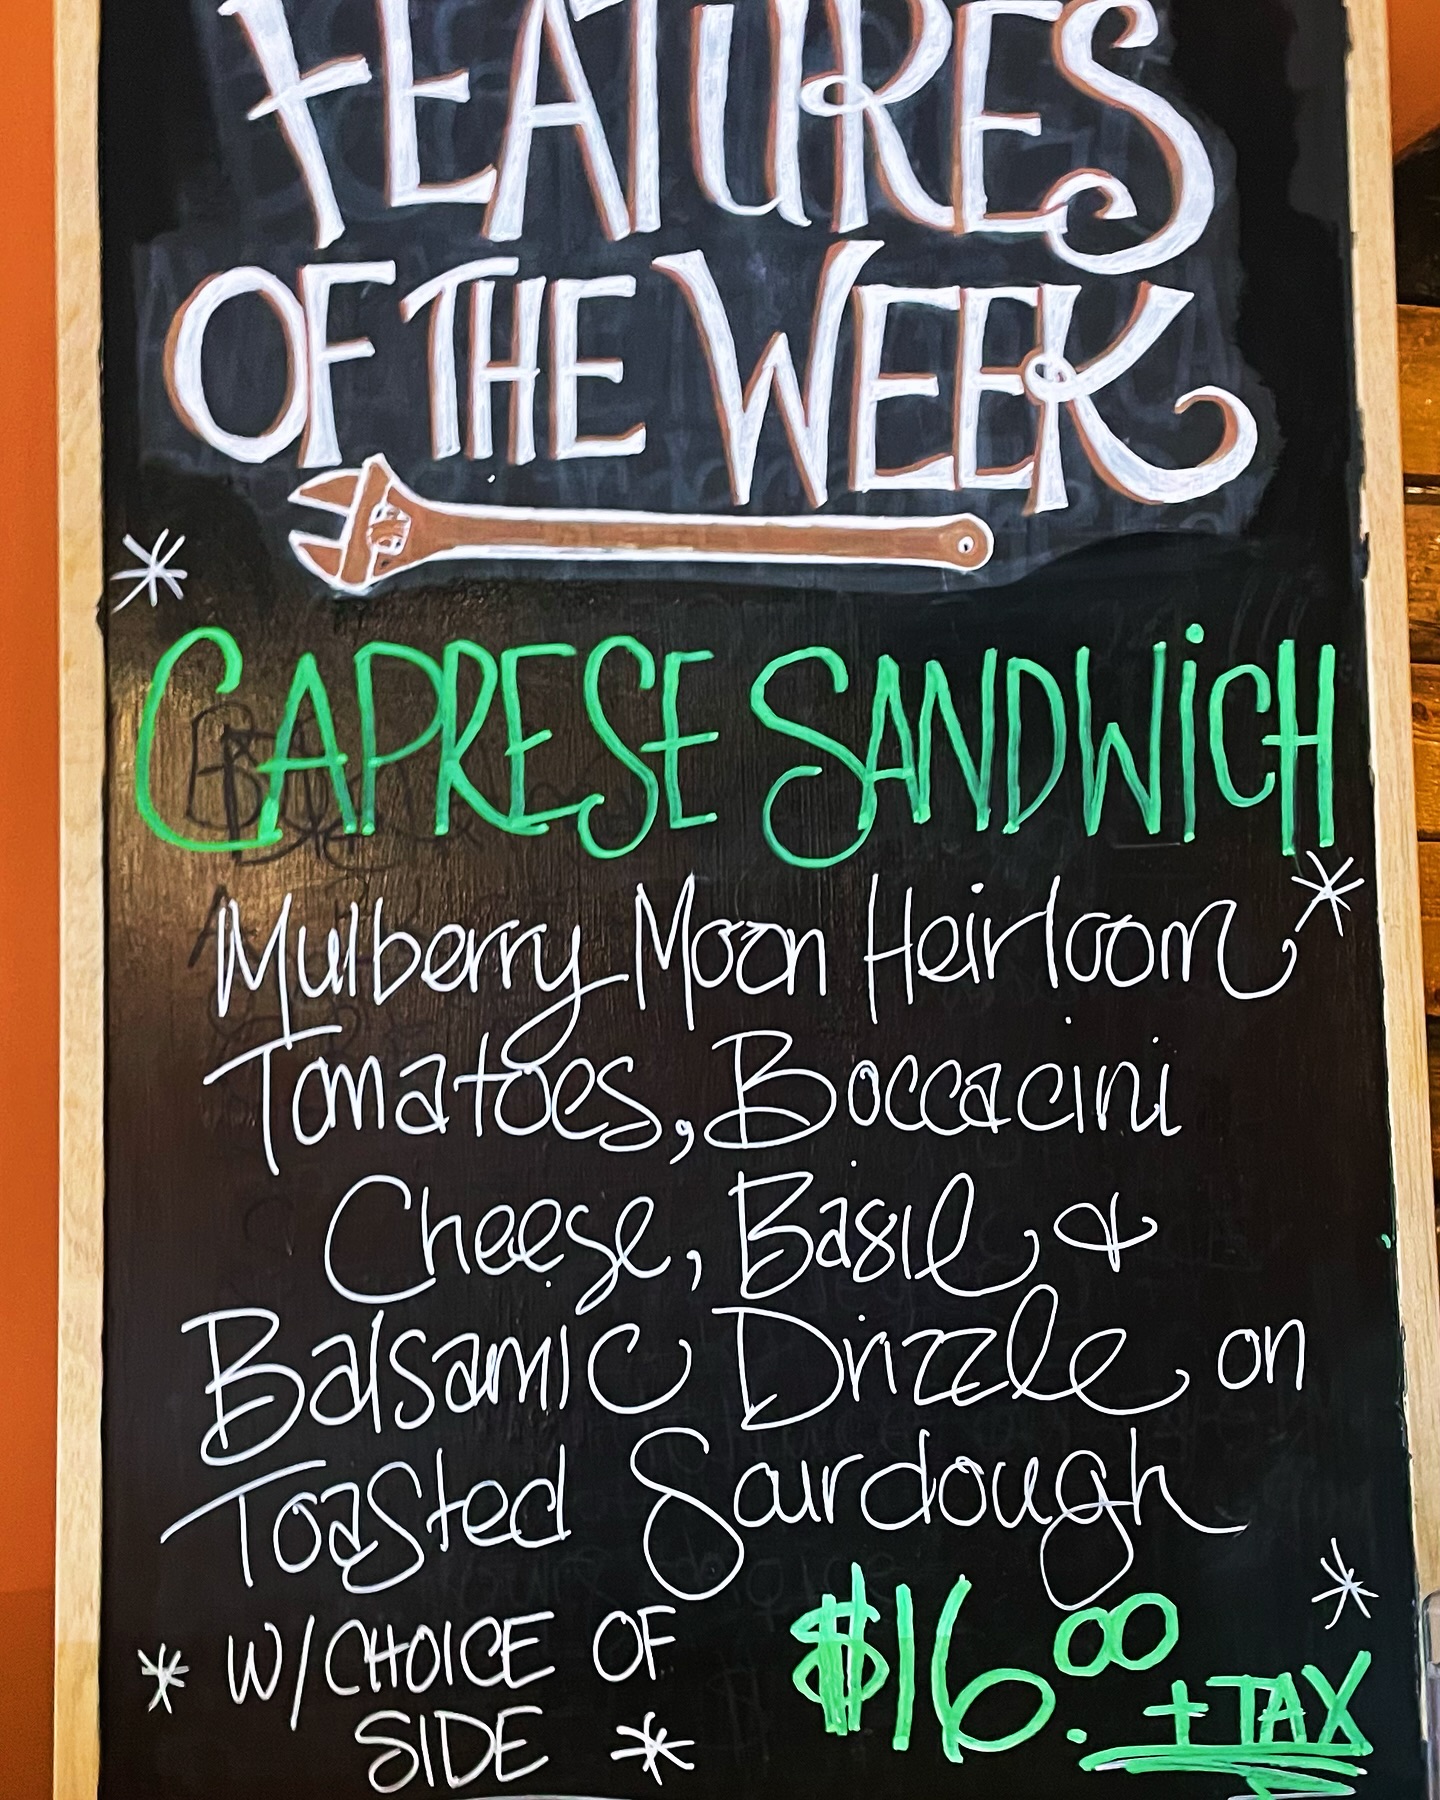 FEATURES
OF THE WEEK
CAPRESE SANDWICH
Mulberry Moon Heirloom
Tomatoes, Boccacini
Cheese, Basil &
Balsamic Drizzle on
Toasted Sourdough
W/CHOICE OF
SIDE
$16.00 + TAX